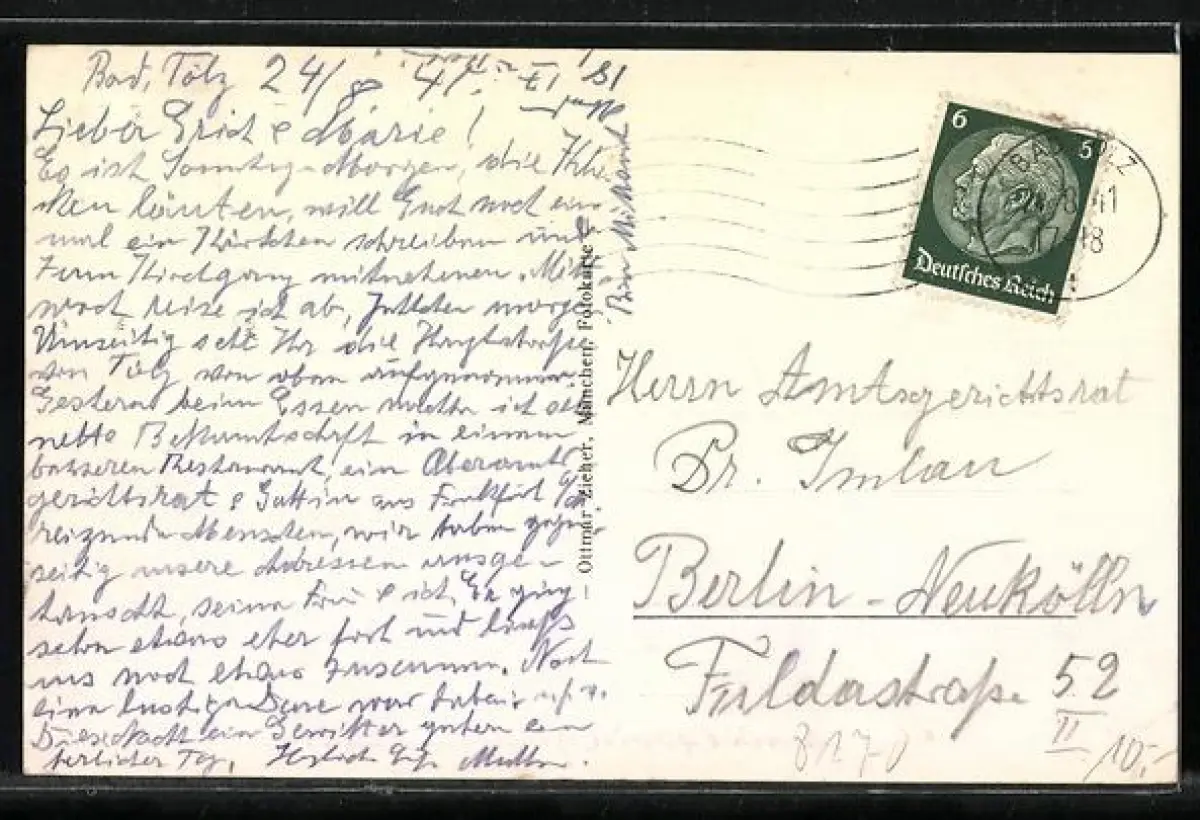 Bad Tölz 24/8 41.
Lieber Erich & Marie!
Es ist Sonntag-Morgen, die Kirchen
läuten, will Euch noch ein
mal ein Kärtchen schreiben und
zum Kirchgang mitnehmen. Mitt
woch reise ich ab,
Umseitig seht Ihr die Hauptstraße
von Tölz von oben aufgenommen.
Gestern beim Essen machte ich
nette Bekanntschaft in einem
besseren Restaurant, ein Oberamts
gerichtsrat & Gattin aus Frankfurt
reizende Menschen, wir haben gegen
seitig unsere Adressen ausge-
tauscht, seine Frau & ich. Er ging
schon etwas eher fort und ließ
uns noch etwas zusammen. Noch
eine lustige war dabei
Diese Nacht ein Gewitter gestern ein
herrlicher Tag. Herzlich Mutter.
Ottmar Zieher, München, Fotokarte
6
5
Deutsches Reich
BAD TÖLZ
8 41
17-18
Herrn Amtsgerichtsrat
Dr. Imlau
Berlin-Neukölln
Fuldastraße 52
II
8170
10,-